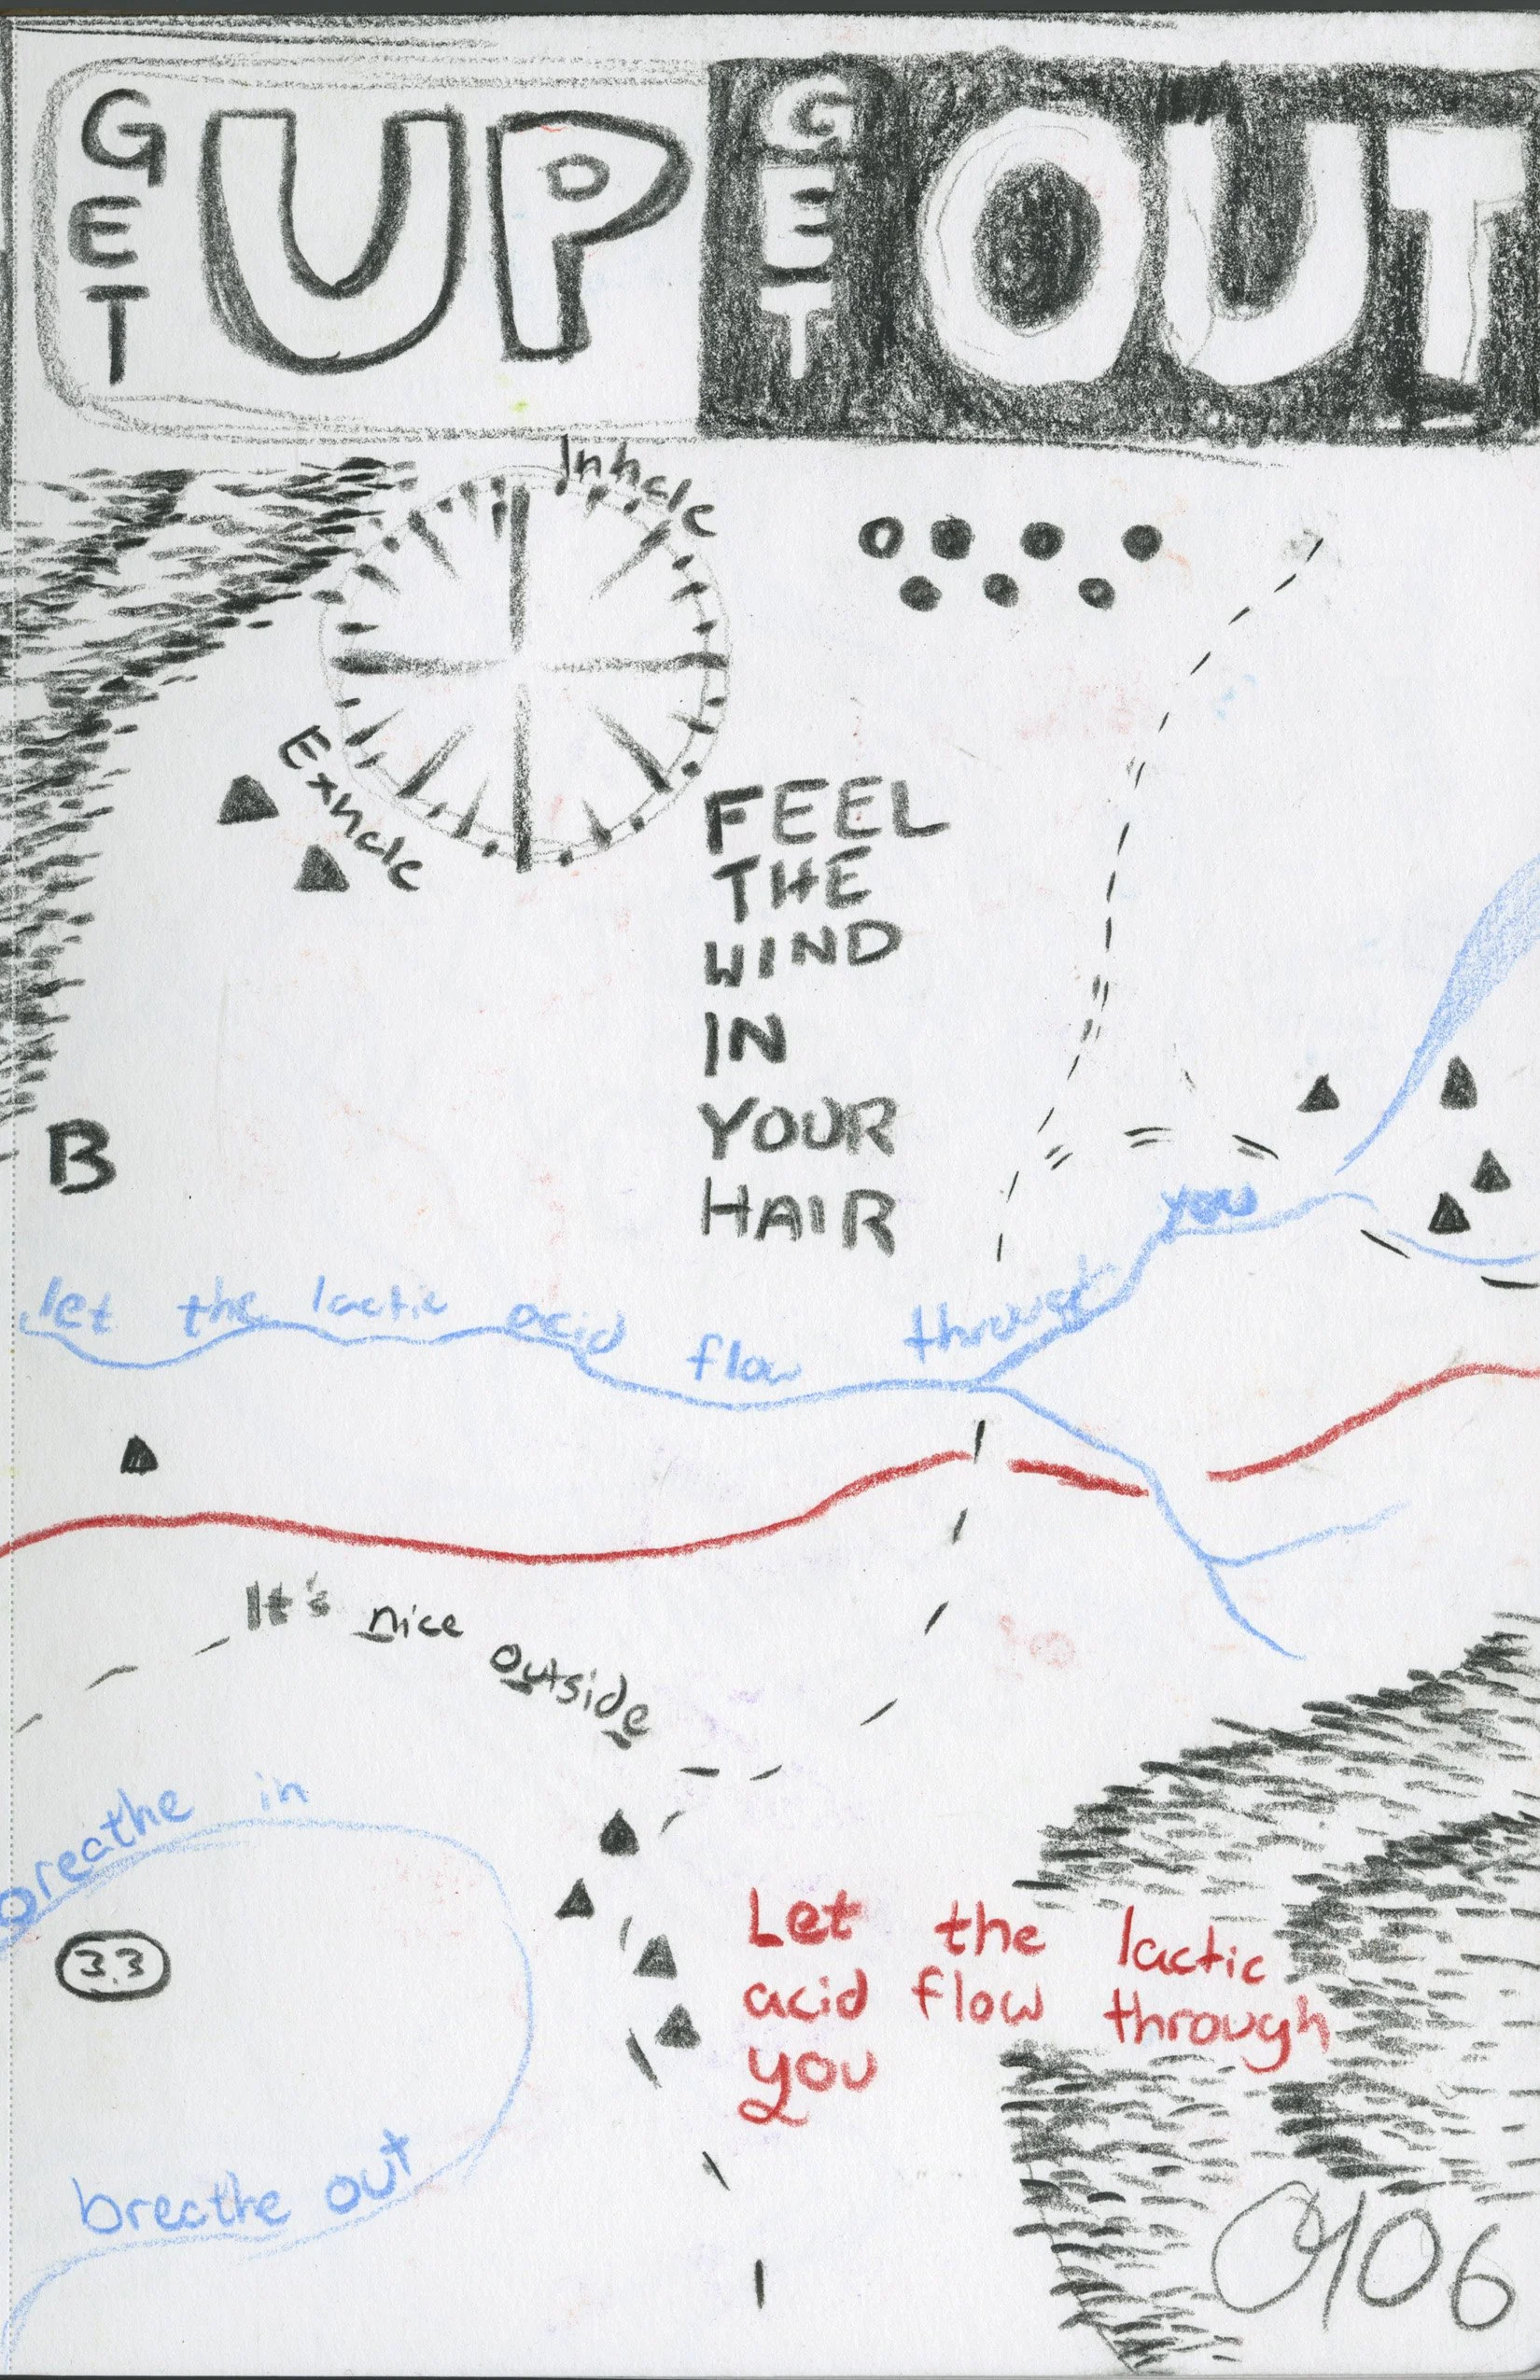 GET UP GET OUT
Inhale
Exhale
FEEL
THE
WIND
IN
YOUR
HAIR
B
let the lactic acid flow through you
It's nice outside
breathe in
3.3
breathe out
Let the lactic
acid flow through
you